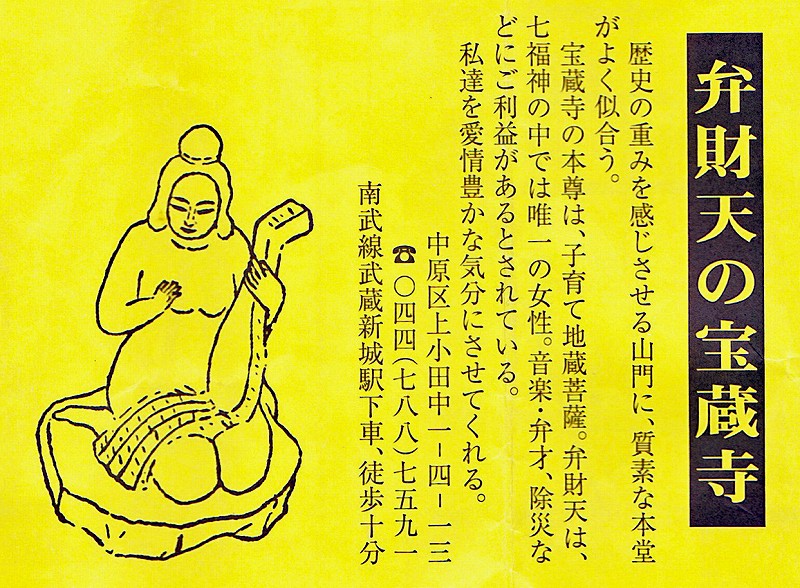 弁財天の宝蔵寺
歴史の重みを感じさせる山門に、質素な本堂
がよく似合う。
宝蔵寺の本尊は、子育て地蔵菩薩。弁財天は、
七福神の中では唯一の女性。音楽・弁才、除災な
どにご利益があるとされている。
私達を愛情豊かな気分にさせてくれる。
中原区上小田中一－四－一三
☎〇四四(七八八)七五九一
南武線武蔵新城駅下車、徒歩十分